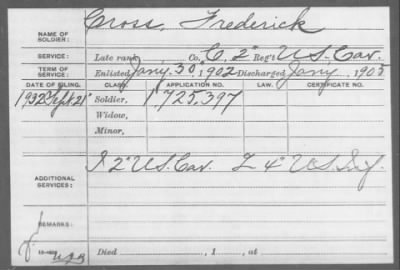 Cross, Frederick
NAME OF SOLDIER:
SERVICE: Late rank, Co. C, 2" Reg't U.S. Cav.
TERM OF SERVICE: Enlisted Jany. 30, 1902 Discharged Jany , 1905
DATE OF FILING. CLASS. APPLICATION NO. LAW. CERTIFICATE NO.
1932 Sept 21" Soldier, 1725,397
Widow,
Minor,
ADDITIONAL SERVICES: I 2" U.S. Cav. L 4" U.S. Inf.
REMARKS:
Died , 1 , at